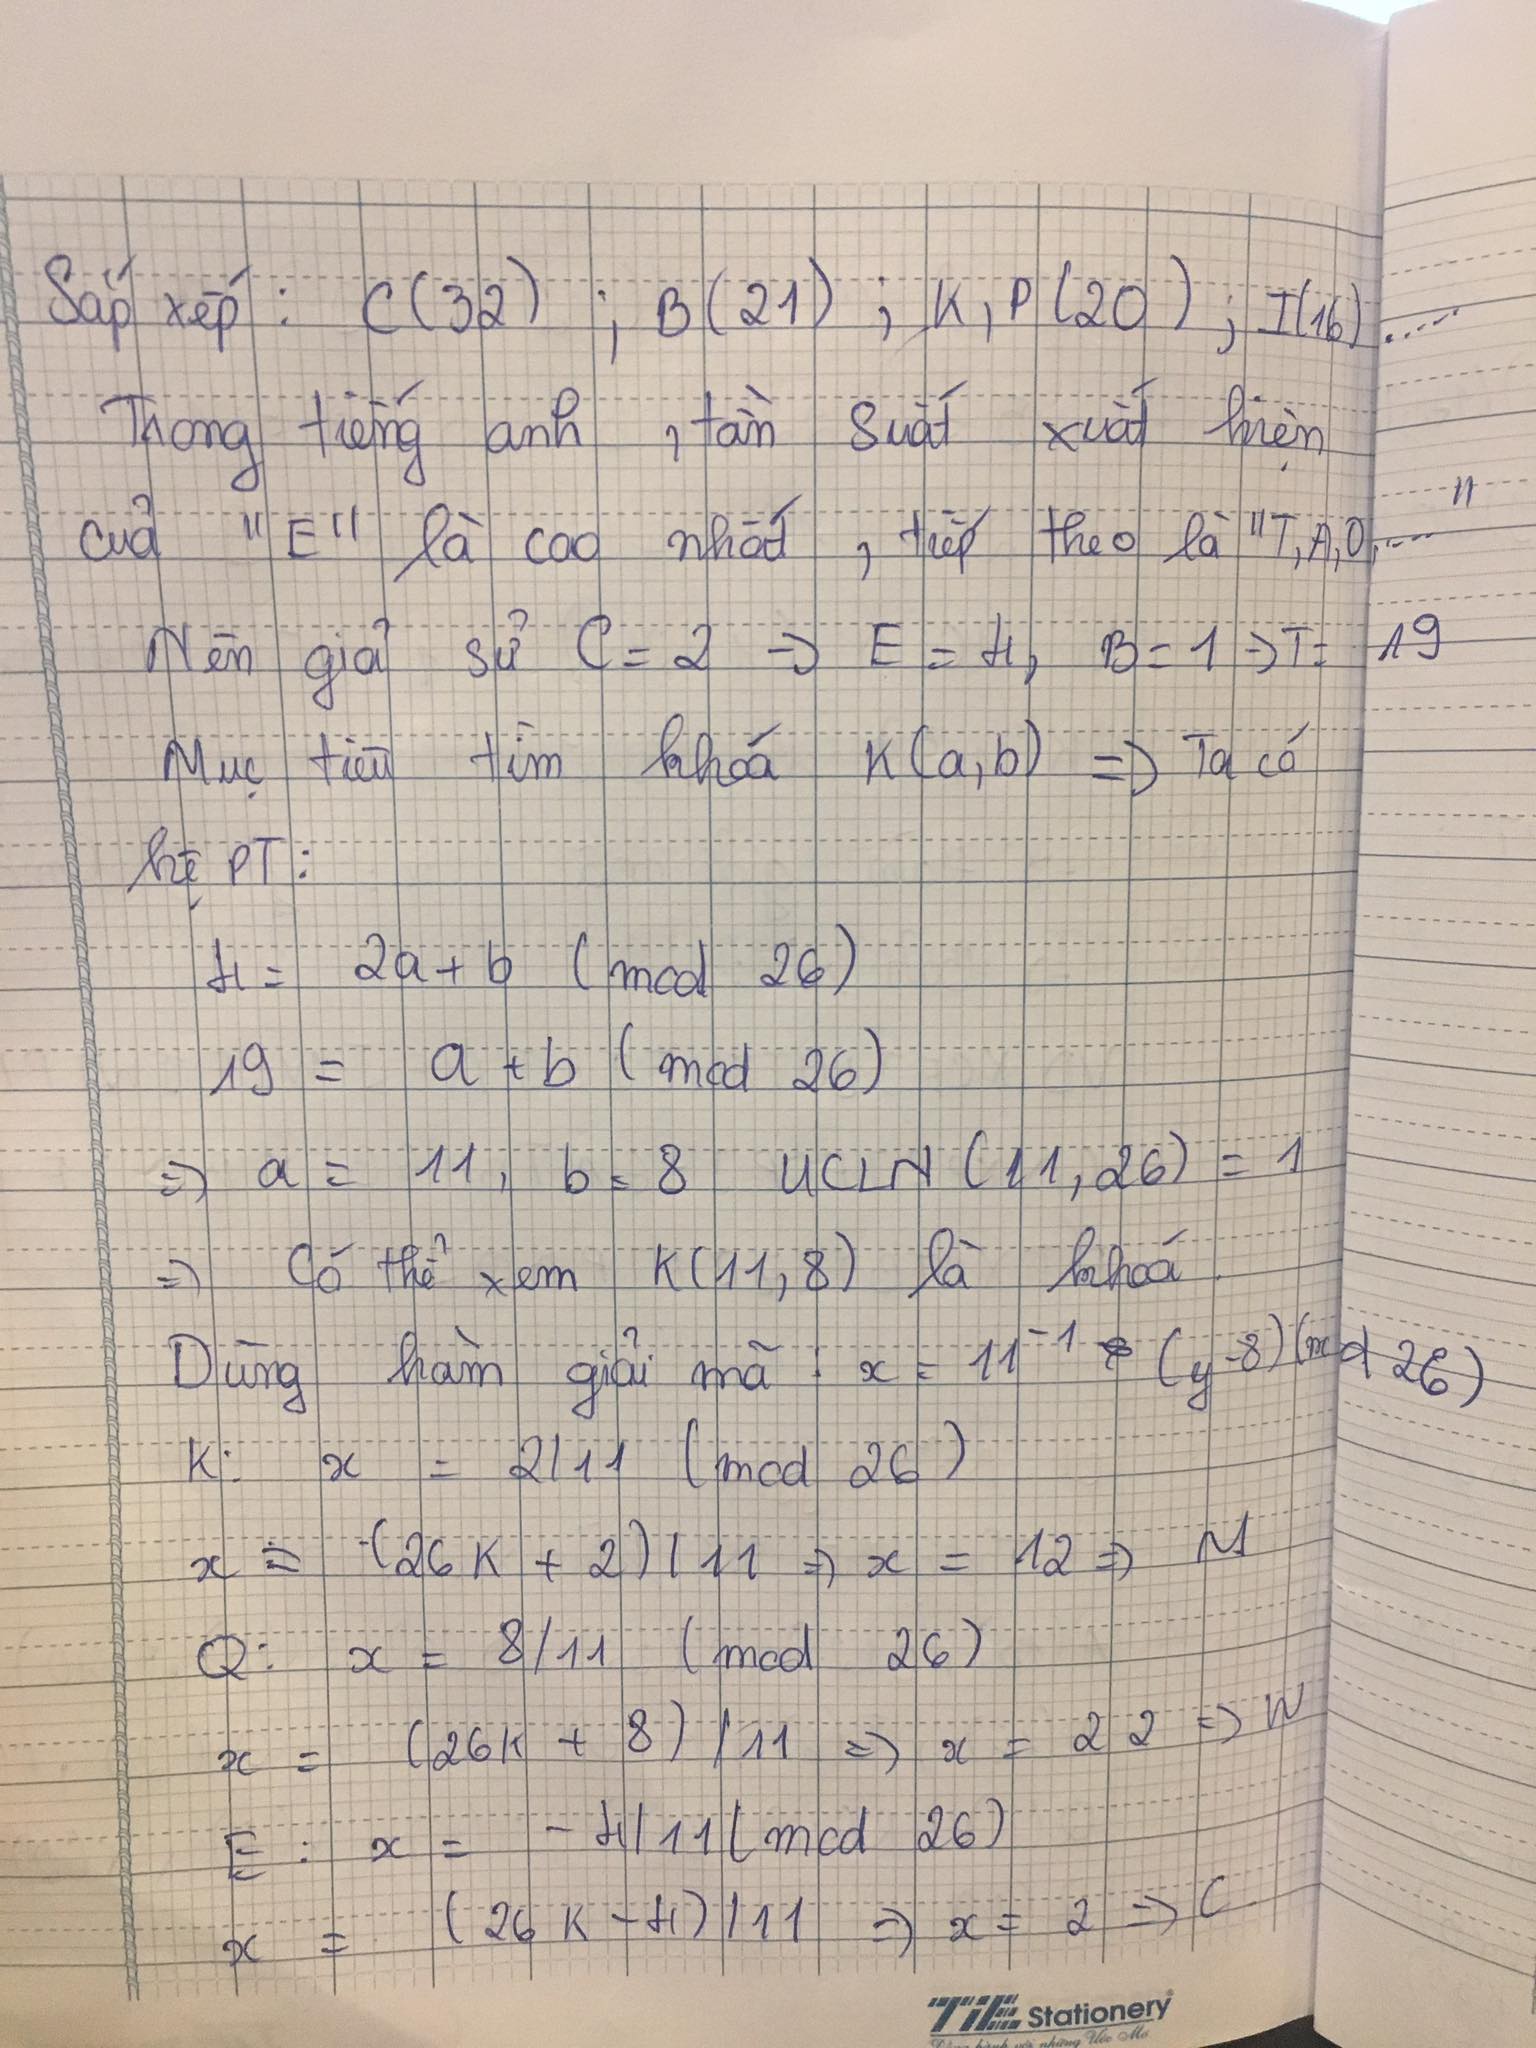 Sắp xếp: C(32) ; B(21) ; K,P(20) ; I(16).....
Trong tiếng anh, tần suất xuất hiện
của "E" là cao nhất, tiếp theo là "T,A,O,...."
Nên giả sử C=2 => E=4, B=1 => T=19
Mục tiêu tìm khoá K(a,b) => Ta có
hệ PT:
4 = 2a+b (mod 26)
19 = a+b (mod 26)
=> a = 11, b = 8 UCLN(11,26) = 1
=> Có thể xem K(11,8) là khoá.
Dùng hàm giải mã: x = 11⁻¹ (y-8) (mod 26)
K: x = 2/11 (mod 26)
x = (26K + 2)/11 => x = 12 => M
Q: x = 8/11 (mod 26)
x = (26K + 8)/11 => x = 22 => W
E: x = -4/11 (mod 26)
x = (26K-4)/11 => x = 2 => C
TiE Stationery